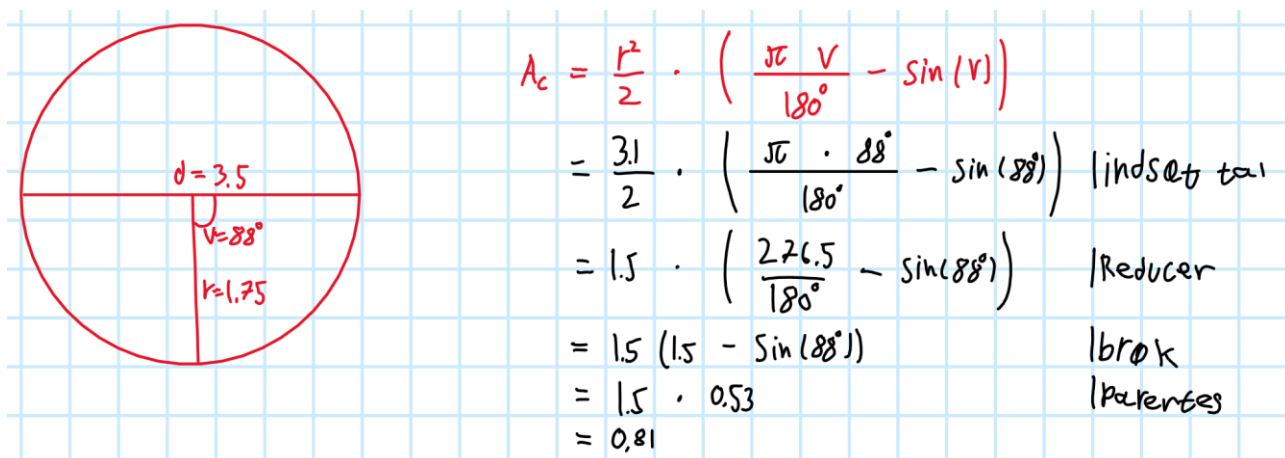 d = 3.5
v=88°
r=1.75
A_c = r²/2 · (π v/180° − sin(v))
= 3.1/2 · (π · 88°/180° − sin(88°)) |indsæt tal
= 1.5 · (276.5/180° − sin(88°)) |Reducer
= 1.5 (1.5 − sin(88°)) |brøk
= 1.5 · 0.53 |Parentes
= 0,81